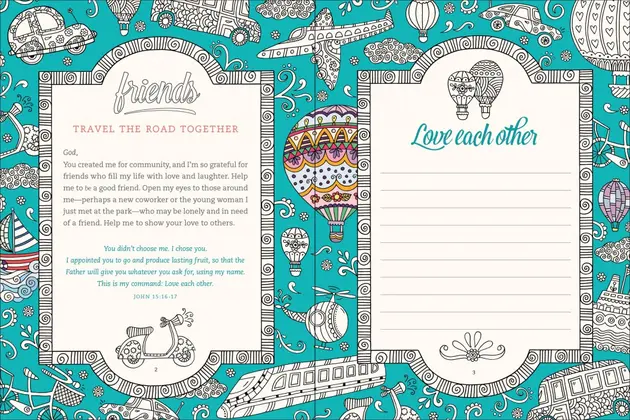 friends
TRAVEL THE ROAD TOGETHER
God,
You created me for community, and I'm so grateful for
friends who fill my life with love and laughter. Help
me to be a good friend. Open my eyes to those around
me—perhaps a new coworker or the young woman I
just met at the park—who may be lonely and in need
of a friend. Help me to show your love to others.
You didn't choose me. I chose you.
I appointed you to go and produce lasting fruit, so that the
Father will give you whatever you ask for, using my name.
This is my command: Love each other.
JOHN 15:16-17
2
Love each other
3